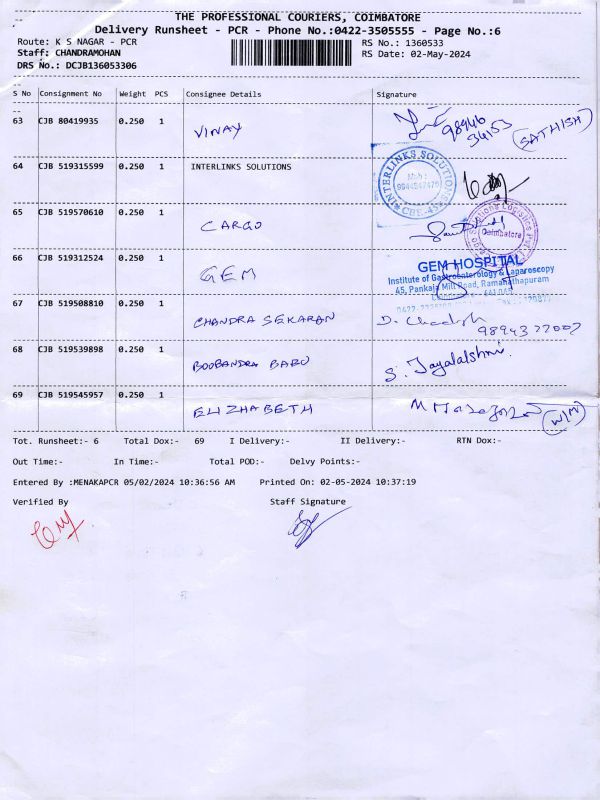 THE PROFESSIONAL COURIERS, COIMBATORE
Delivery Runsheet - PCR - Phone No.:0422-3505555 - Page No.:6
Route: K S NAGAR - PCR RS No.: 1360533
Staff: CHANDRAMOHAN RS Date: 02-May-2024
DRS No.: DCJB136053306
S No Consignment No Weight PCS Consignee Details Signature
63 CJB 80419935 0.250 1 VINAY 98946 34153 (SATHISH)
64 CJB 519315599 0.250 1 INTERLINKS SOLUTIONS INTERLINKS SOLUTIONS Mob: CBE-45
65 CJB 519570610 0.250 1 CARGO Coimbatore
66 CJB 519312524 0.250 1 GEM GEM HOSPITAL
Institute of Gastroenterology & Laparoscopy
45, Pankaja Mill Road, Ramanathapuram
67 CJB 519508810 0.250 1 CHANDRA SEKARAN
68 CJB 519539898 0.250 1 BOOBANDRA BABU S. Jayalalshmi.
69 CJB 519545957 0.250 1 ELIZHABETH (W/M)
Tot. Runsheet:- 6 Total Dox:- 69 I Delivery:- II Delivery:- RTN Dox:-
Out Time:- In Time:- Total POD:- Delvy Points:-
Entered By :MENAKAPCR 05/02/2024 10:36:56 AM Printed On: 02-05-2024 10:37:19
Verified By Staff Signature